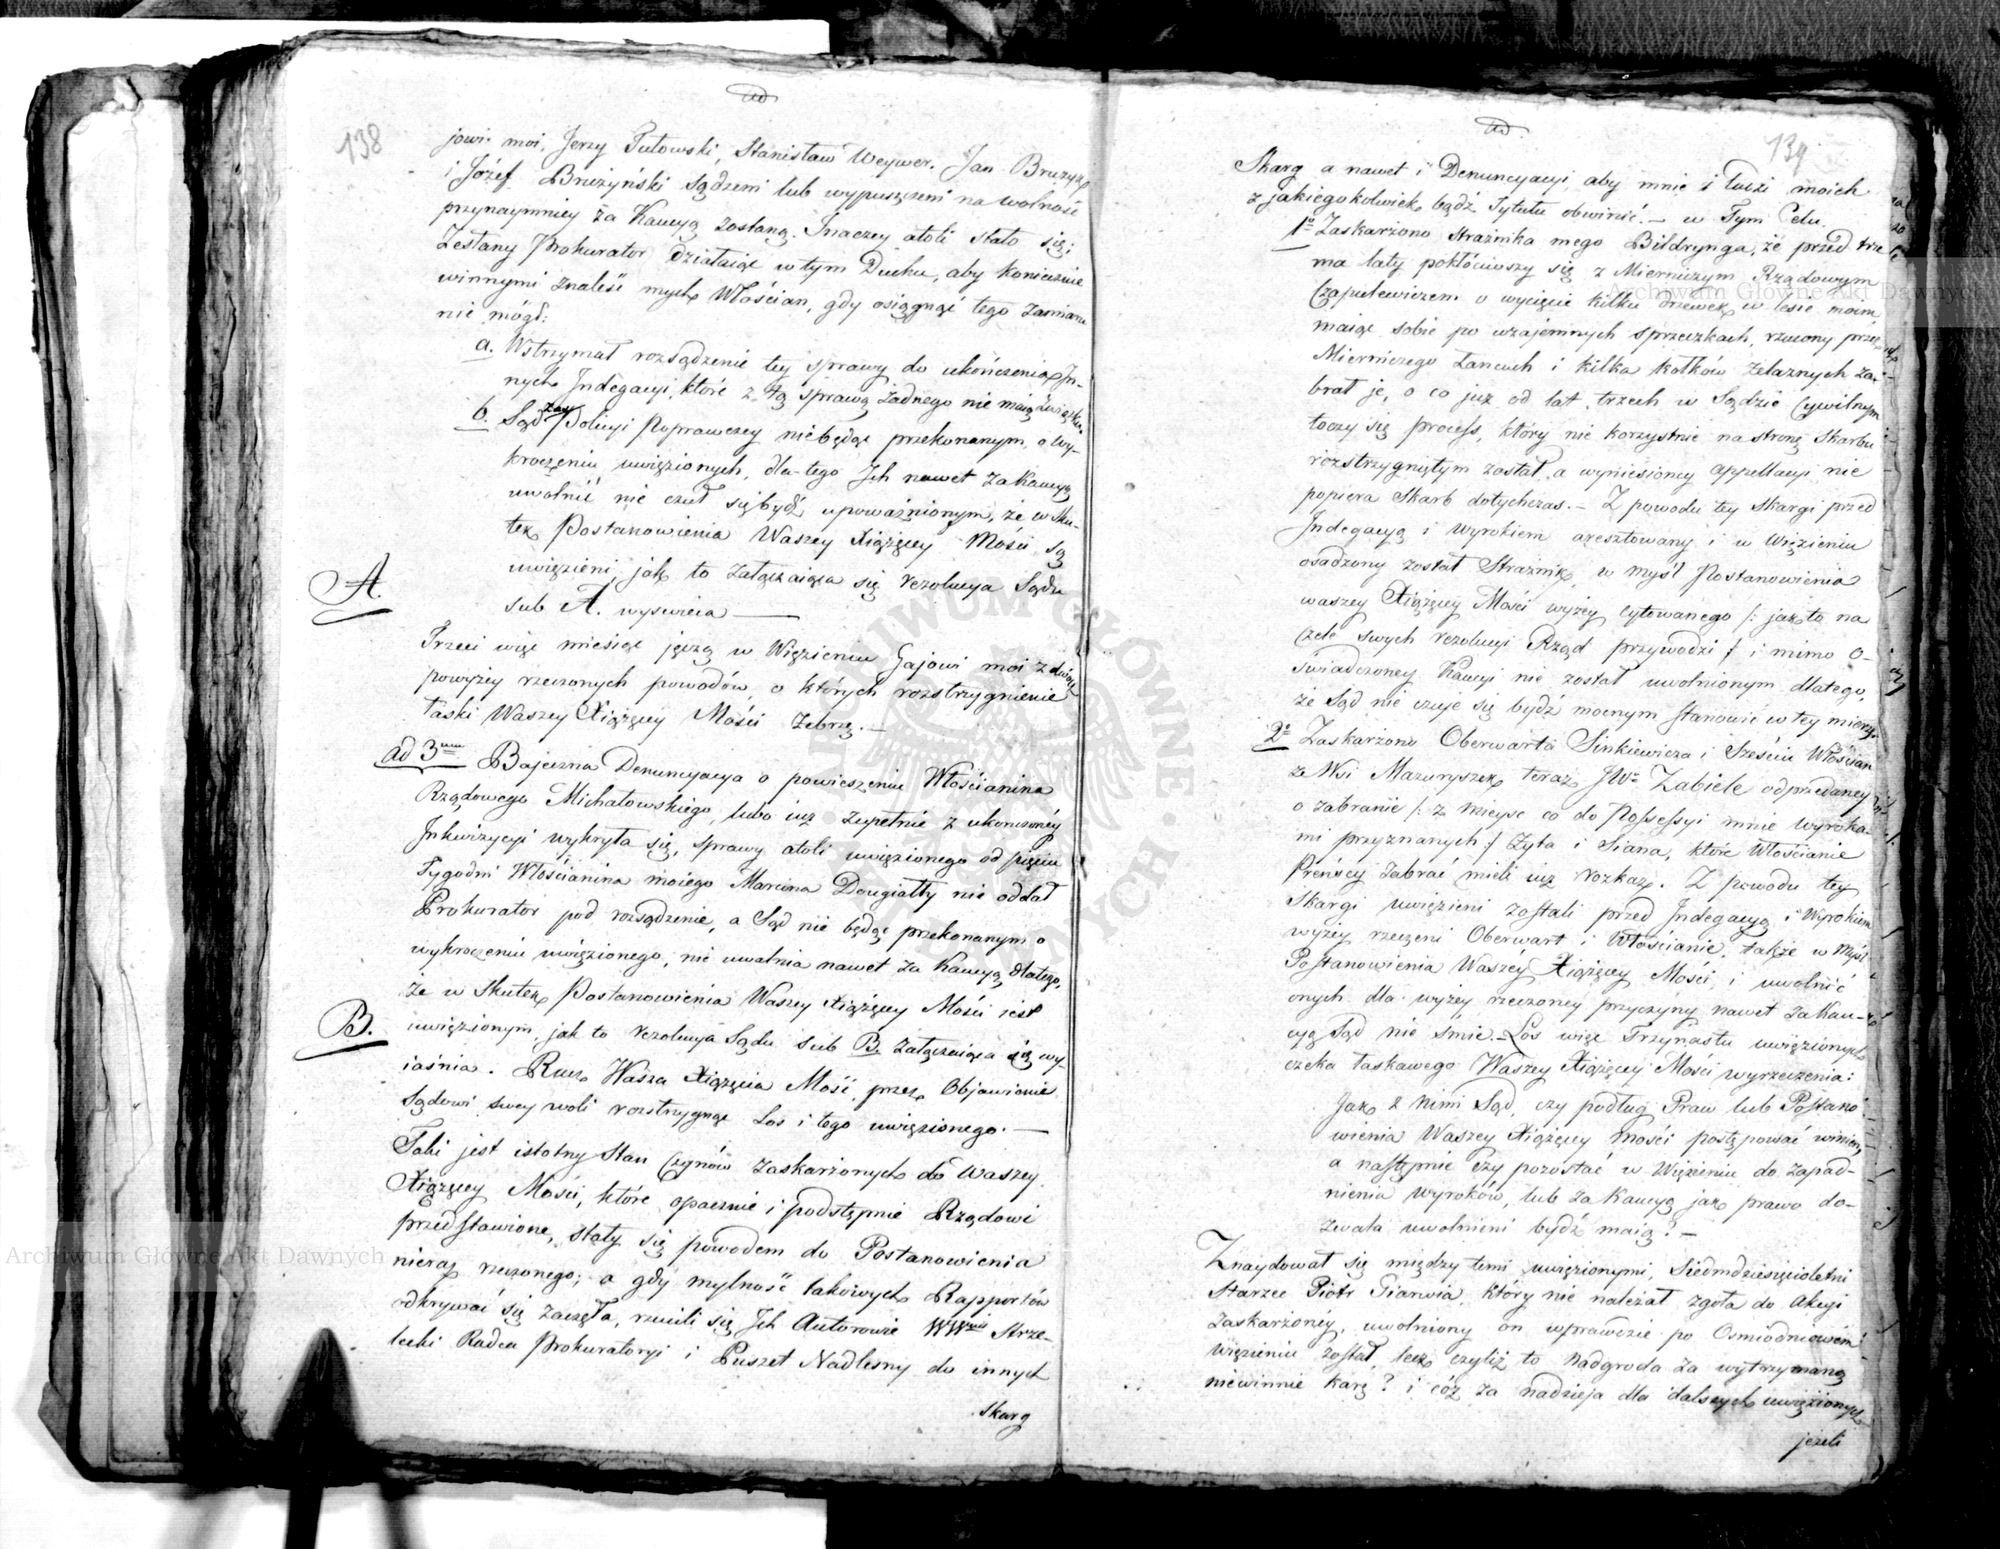 138
jowi moi, Jerzy Putowski, Stanisław Weywer, Jan Bruzyń
i Józef Brużyński sądzeni lub wypuszczeni na wolność
przynaymniey za Kaucyą zostaną. Inaczey atoli stało się;
Zesłany Prokurator działaiąc w tym Duchu, aby koniecznie
winnymi znaleść mych Włościan, gdy osiągnąć tego zamiaru
nie mógł:
a. Wstrzymał rozsądzenie tey sprawy do ukończenia In-
nych Indegacyi, które z tą sprawą żadnego nie maią związku
b. Sąd zaś Policyi Poprawczey niebędąc przekonanym, o wy-
kroczeniu uwięzionych, dla-tego Ich nawet za Kaucyą
uwolnić nie czuł się bydź upoważnionym, że w sku-
tek Postanowienia Waszey Xiążęcey Mości są
uwięzieni, jak to załączaiąca się rezolucya Sądu
A.
sub A. wyswieca —
Trzeci więc miesiąc jęczą w Więzieniu Gajowi moi z dwóch
powyżey rzeczonych powodów, o których rozstrzygnienie
łaski Waszey Xiążęcey Mości żebrzę. —
ad 3um Bajeczna Denuncyacya o powieszeniu Włościanina
Rządowego Michałowskiego, lubo iuż zupełnie z ukonczoney
Inkwizycyi wykryła się, sprawy atoli uwięzionego od pięciu
Tygodni Włościanina moiego Marcina Dougiałły nie oddał
Prokurator pod rozsądzenie, a Sąd nie będąc przekonanym o
wykroczeniu uwięzionego, nie uwalnia nawet za Kaucyą dlatego,
że w skutek Postanowienia Waszey Xiążęcey Mości iest
B.
uwięzionym, jak to rezolucya Sądu sub B. załączaiąca się wy-
iaśnia. Racz Wasza Xiążęca Mość przez Objawienie
Sądowi swey woli rozstrzygnąć Los i tego uwięzionego. —
Taki jest istotny stan Czynów zaskarżonych do Waszey
Xiążęcey Mości, które opacznie i podstępnie Rządowi
przedstawione, stały się powodem do Postanowienia
nieraz rzeczonego; a gdy mylność takowych Rapportów
odkrywać się zaczęła, rzucili się Ich Autorowie WW Strze-
lecki Radca Prokuratoryi i Puszet Nadlesny do innych
skarg
139
Skarg a nawet i Denuncyacyi, aby mnie i ludzi moich
z jakiegokolwiek bądź Tytułu obwinić. — w Tym Celu
1o Zaskarżono Strażnika mego Bildrynga, że przed trze
ma laty pokłóciwszy się z Mierniczym Rządowym
Czapulewiczem o wycięcie kilku drzewek w lesie moim
maiąc sobie po wzajemnych sprzeczkach, rzucony przez
Mierniczego Łancuch i kilka kołków żelaznych za-
brał je, o co już od lat trzech w Sądzie Cywilnym
toczy się process, który nie korzystnie na stronę Skarbu
rozstrzygniętym został, a wyniesioney appellacyi nie
popiera Skarb dotychczas. — Z powodu tey Skargi przed
Indegacyą i Wyrokiem aresztowany i w Więzieniu
osadzony został Strażnik, w myśl Postanowienia
waszey Xiążęcey Mości wyżey cytowanego /: jak to na
Czele swych rezolucyi Rząd przywodzi :/ i mimo o-
świadczoney Kaucyi nie został uwolnionym dlatego,
że Sąd nie czuje się bydź mocnym stanowić w tey mierze.
2o Zaskarżono Oberwarta Sinkiewicza i Sześciu Włościan
ze Wsi Mazuryszek teraz JWo Zabiele odprzedaney
o zabranie /: z mieysc co do Possessyi mnie wyroka-
mi przyznanych :/ Żyta i Siana, które Włościanie
Preńscy zabrać mieli iuż rozkaz. Z powodu tey
Skargi uwięzieni zostali przed Indegacyą i Wyrokiem
wyżey rzeczeni Oberwart i Włościanie, także w Myśl
Postanowienia Waszey Xiążęcey Mości, i uwolnić
onych dla wyżey rzeczoney przyczyny nawet za Kau-
cyą Sąd nie śmie. — Los więc Trzynastu uwięzionych
czeka łaskawego Waszey Xiążęcey Mości wyrzeczenia:
Jak z nimi Sąd, czy podług Praw lub Postano-
wienia Waszey Xiążęcey Mości postępować winien,
a następnie Czy pozostać w Więzieniu do zapad-
nienia wyroków, lub za Kaucyą jak prawo do-
zwala uwolnieni bydź maią? —
Znaydował się między temi uwięzionymi, Siedmdziesięcioletni
Starzec Piotr Giarwia, który nie należał zgoła do Akcyi
zaskarżoney, uwolniony on wprawdzie po Osmiodniowem
więzieniu został, lecz czyliż to nadgroda za wytrzymaną
niewinnie karę? i cóż za nadzieja dla dalszych uwięzionych
jeżeli
Archiwum Główne Akt Dawnych
Archiwum Główne Akt Dawnych
ARCHIWUM GŁÓWNE AKT DAWNYCH